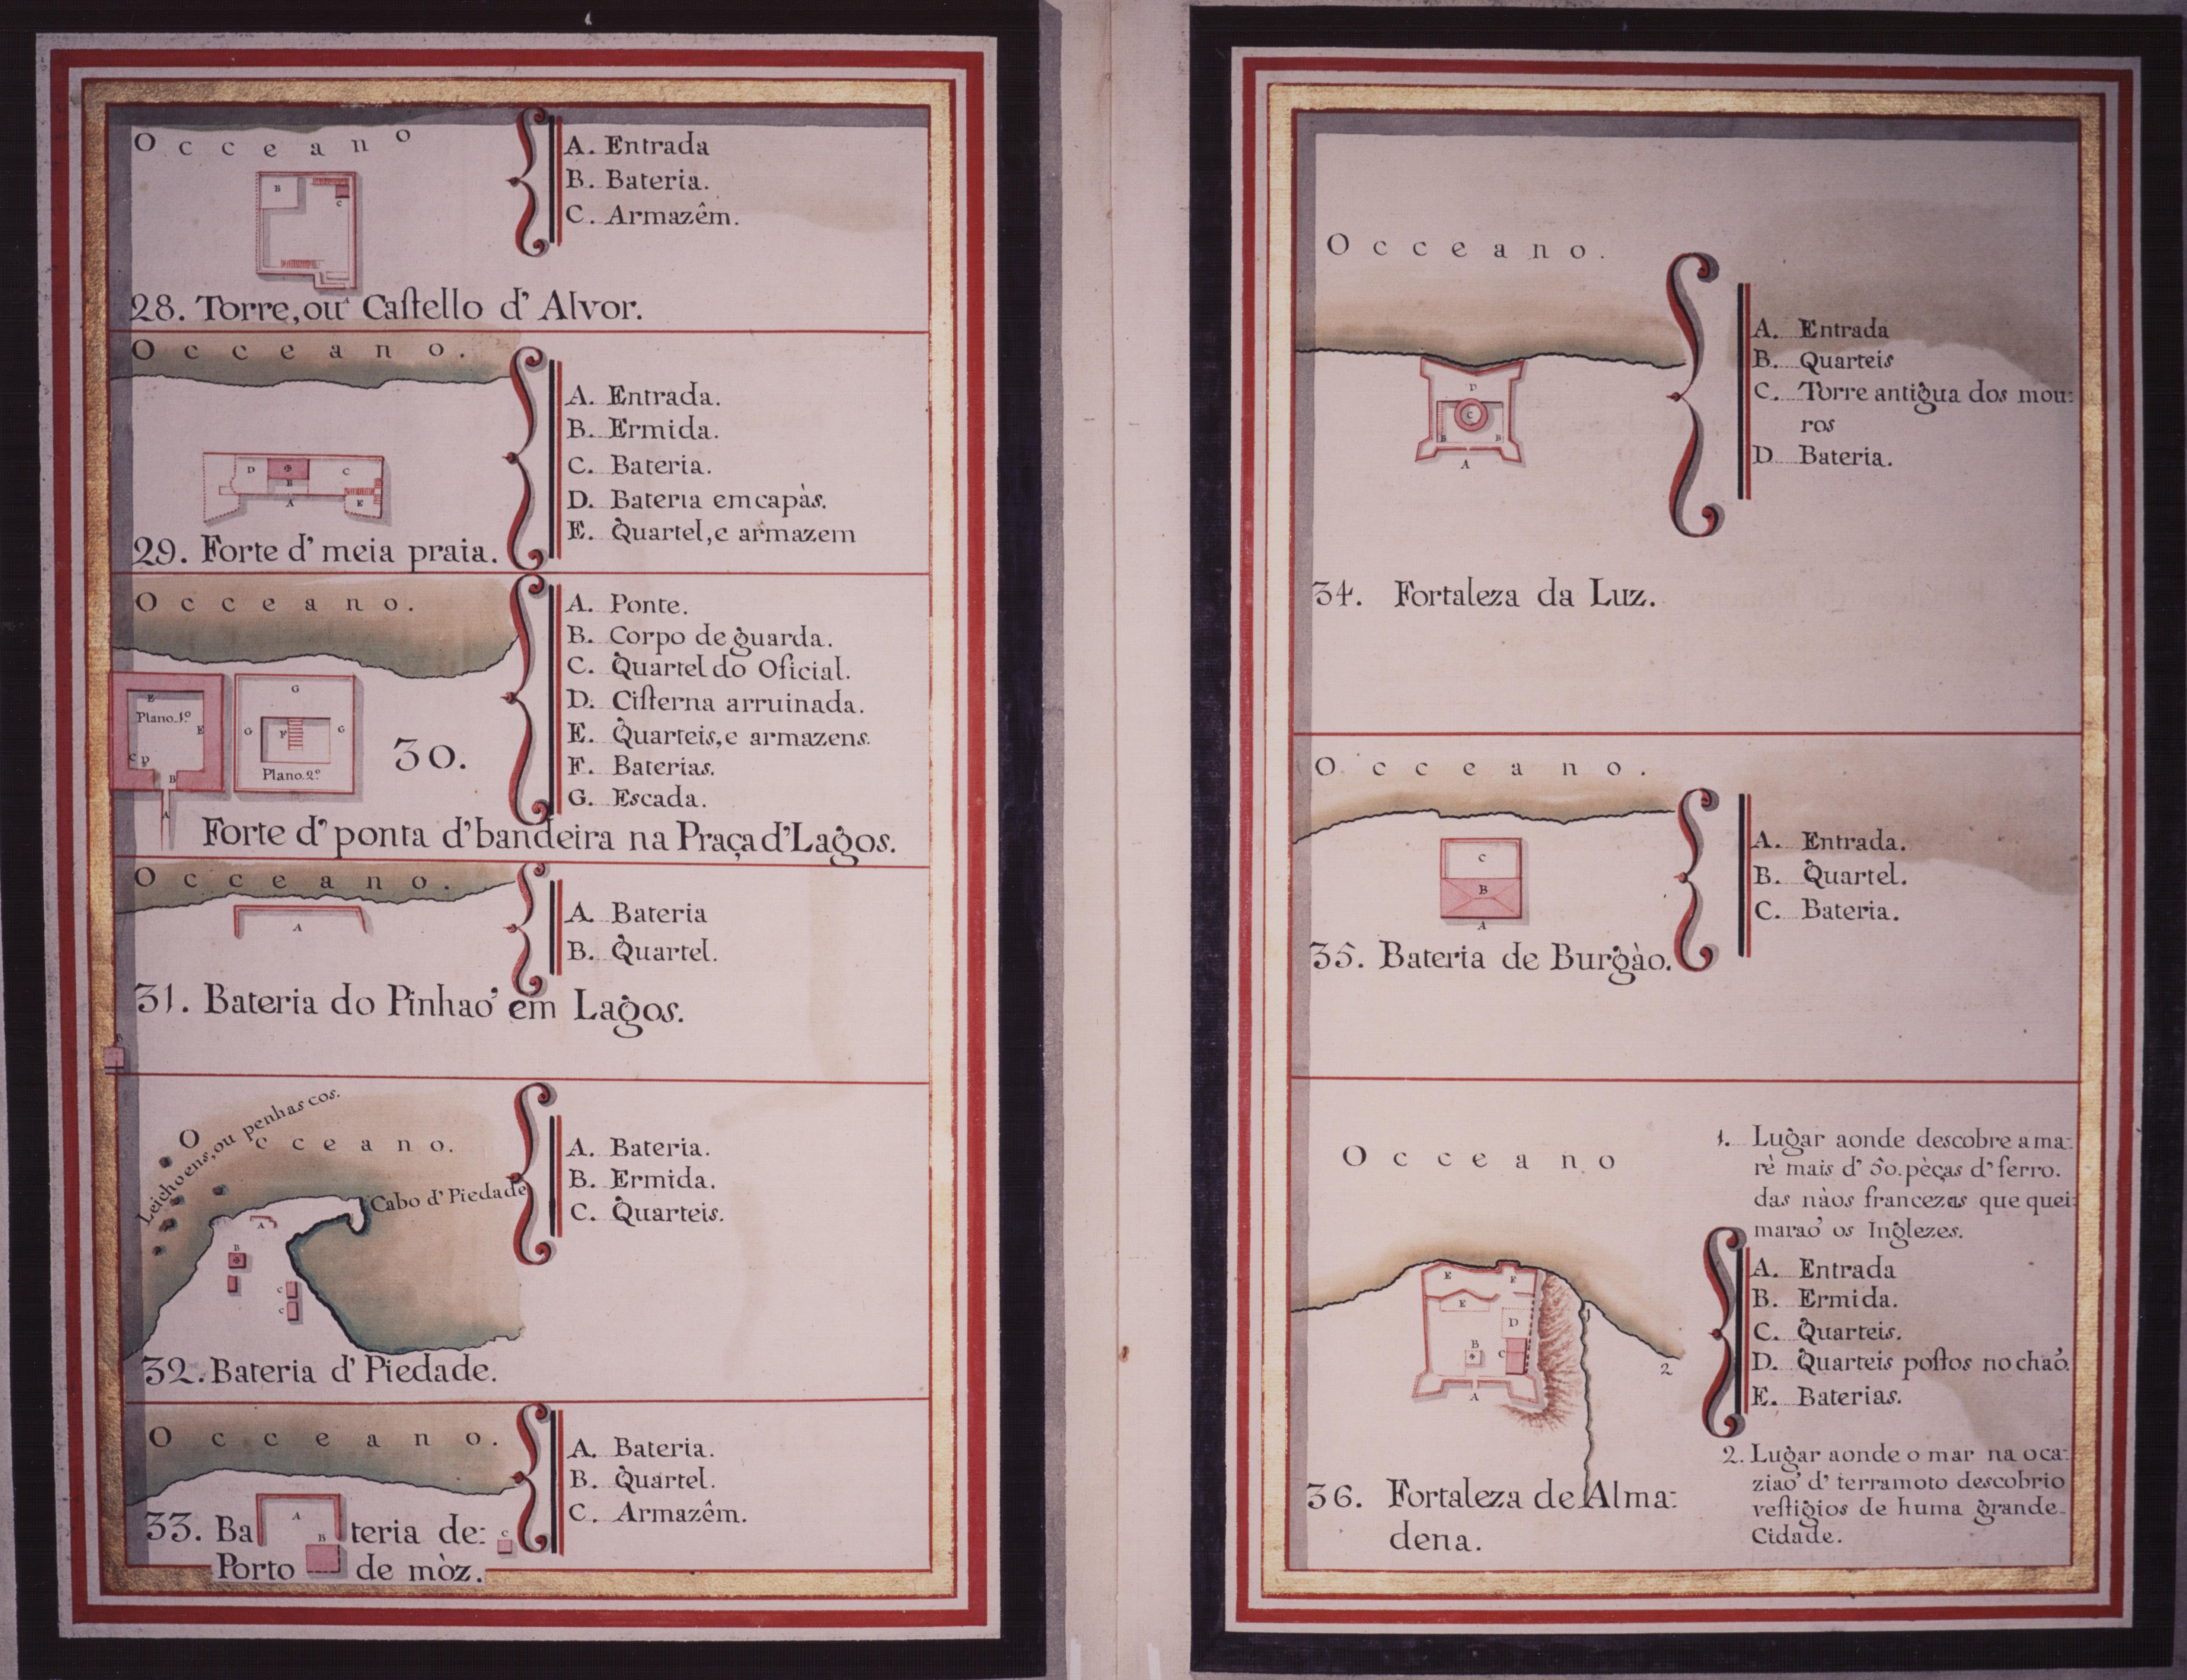 Occeano
B
C
A. Entrada
B. Bateria.
C. Armazêm.
28. Torre, ou Castello d' Alvor.
Occeano.
D
B
C
A
E
A. Entrada.
B. Ermida.
C. Bateria.
D. Bateria emcapàs.
E. Quartel, e armazem
29. Forte d' meia praia.
Occeano.
E
Plano. 1º
E
C D
B
A
G
G
F
G
Plano. 2º
30.
A. Ponte.
B. Corpo de guarda.
C. Quartel do Oficial.
D. Cisterna arruinada.
E. Quarteis, e armazens.
F. Baterias.
G. Escada.
Forte d' ponta d' bandeira na Praça d' Lagos.
Occeano.
A
A. Bateria
B. Quartel.
31. Bateria do Pinhaõ em Lagos.
B
Leichoens, ou penhascos.
Occeano.
Cabo d' Piedade
A
B
C
C
A. Bateria.
B. Ermida.
C. Quarteis.
32. Bateria d' Piedade.
Occeano.
A
B
C
A. Bateria.
B. Quartel.
C. Armazêm.
33. Bateria de:
Porto de mòz.
Occeano.
D
C
B
B
A
A. Entrada
B. Quarteis
C. Torre antigua dos mou:
ros
D Bateria.
34. Fortaleza da Luz.
Occeano.
C
B
A
A. Entrada.
B. Quartel.
C. Bateria.
35. Bateria de Burgào.
Occeano
E
E
E
D
B
C
A
1
2
1. Lugar aonde descobre a ma:
rè mais d' 50. pèças d' ferro.
das nàos francezas que quei:
maraõ os Inglezes.
A. Entrada
B. Ermida.
C. Quarteis.
D. Quarteis postos no chaõ.
E. Baterias.
2. Lugar aonde o mar na oca:
ziaõ d' terramoto descobrio
vestigios de huma grande
Cidade.
36. Fortaleza de Alma:
dena.